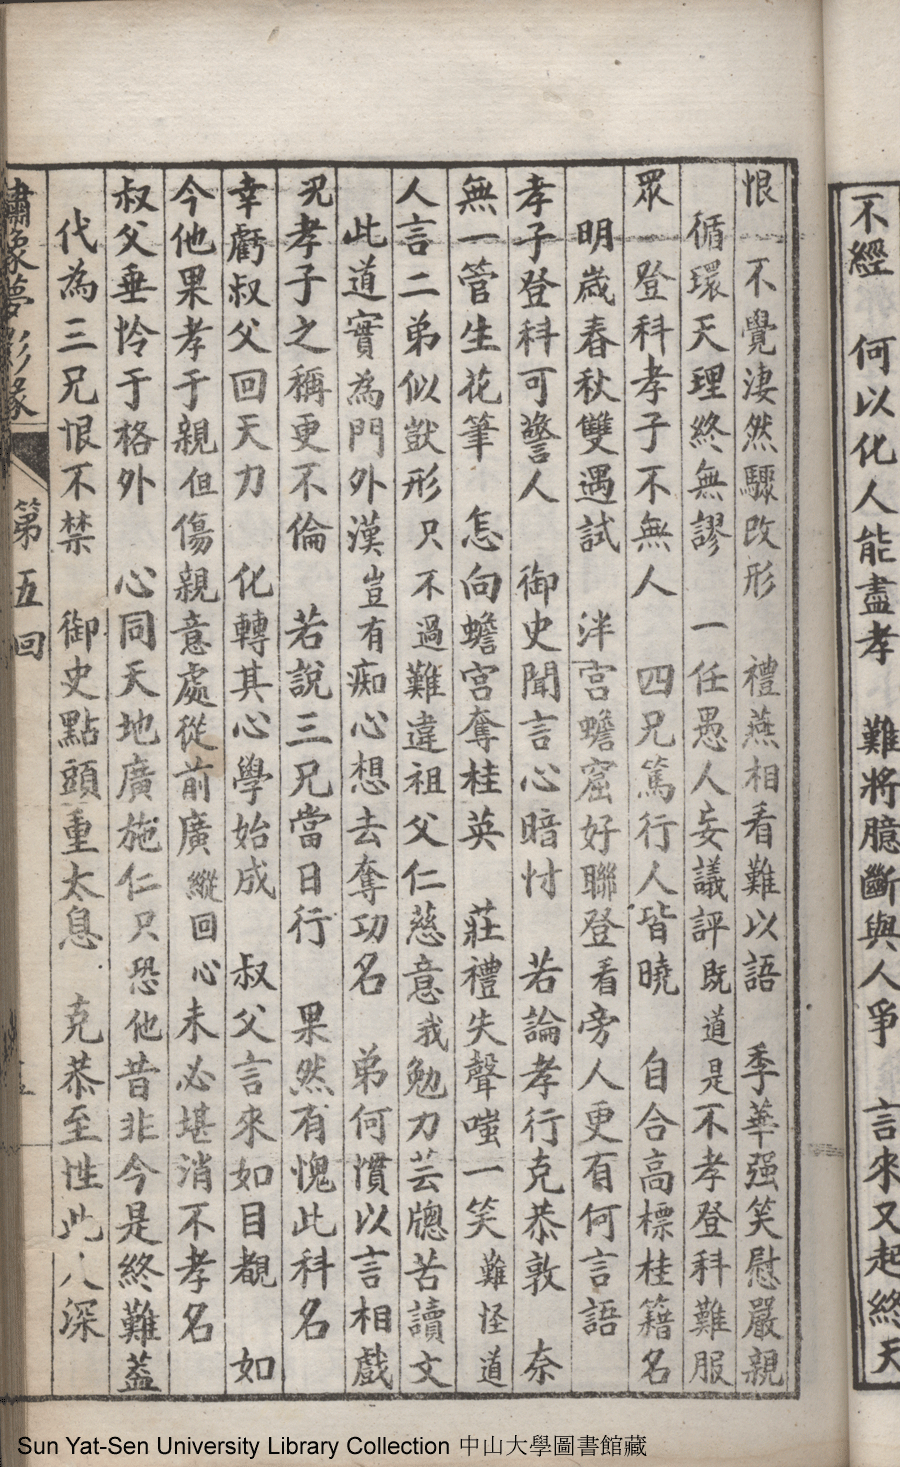 不經　何以化人能盡孝　難將臆斷與人爭　言來又起終天
恨　不覺淒然驟改形　禮燕相看難以語　季華强笑慰嚴親
循環天理終無謬　一任愚人妄議評　既道是不孝登科難服
眾　一登科孝子不無人　四兄篤行人皆曉　自合高標桂籍名
明歲春秋雙遇試　泮宮蟾窟好聯登　看旁人更有何言語
孝子登科可警人　御史聞言心暗忖　若論孝行克恭敦　奈
無一管生花筆　怎向蟾宮奪桂英　莊禮失聲嗤一笑　難怪道
人言二弟似獃形　只不過難違祖父仁慈意　我勉力芸牕苦讀文
此道實為門外漢　豈有痴心想去奪功名　弟何慣以言相戲
況孝子之稱更不倫　若說三兄當日行　果然有愧此科名
幸虧叔父回天力　化轉其心學始成　叔父言來如目覩　如
今他果孝于親　但傷親意處從前廣　縱回心未必堪消不孝名
叔父垂怜于格外　心同天地廣施仁　只恐他昔非今是終難蓋
代為三兄恨不禁　御史點頭重太息　克恭至性此人深
繡像夢影緣　第五回
Sun Yat-Sen University Library Collection 中山大學圖書館藏